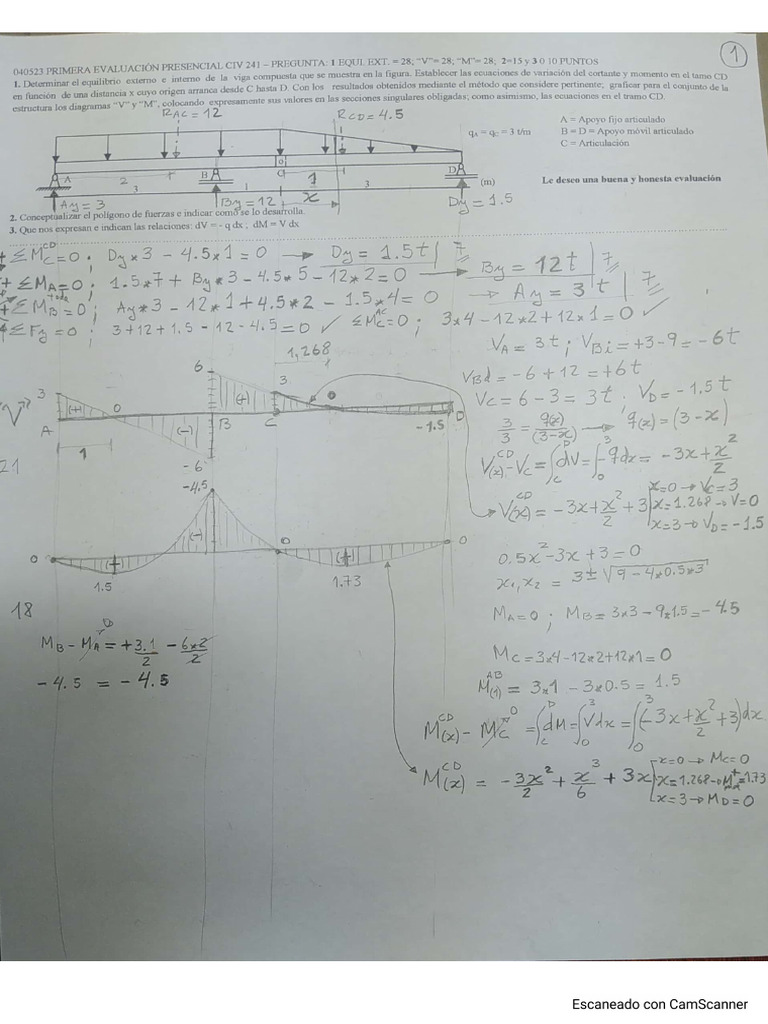 1
040523 PRIMERA EVALUACIÓN PRESENCIAL CIV 241 – PREGUNTA: 1 EQUI. EXT. = 28; "V"= 28; "M"= 28; 2=15 y 3 0 10 PUNTOS
1. Determinar el equilibrio externo e interno de la viga compuesta que se muestra en la figura. Establecer las ecuaciones de variación del cortante y momento en el tamo CD
en función de una distancia x cuyo origen arranca desde C hasta D. Con los resultados obtenidos mediante el método que considere pertinente; graficar para el conjunto de la
estructura los diagramas "V" y "M", colocando expresamente sus valores en las secciones singulares obligadas; como asimismo, las ecuaciones en el tramo CD.
RAC = 12
RCD = 4.5
qA = qC = 3 t/m
A = Apoyo fijo articulado
B = D = Apoyo móvil articulado
C = Articulación
A
B
C
D
2
1
3
1
x
3
(m)
Le deseo una buena y honesta evaluación
Ay = 3
By = 12
Dy = 1.5
2. Conceptualizar el polígono de fuerzas e indicar como se lo desarrolla.
3. Que nos expresan e indican las relaciones: dV = - q dx ; dM = V dx
+ ΣMC^CD = 0 ; Dy*3 - 4.5*1 = 0 → Dy = 1.5t | 7
+ ΣMA = 0 ; 1.5*7 + By*3 - 4.5*5 - 12*2 = 0 → By = 12t | 7
+ ΣMB = 0 ; Ay*3 - 12*1 + 4.5*2 - 1.5*4 = 0 → Ay = 3t | 7
ΣFy = 0 ; 3+12+1.5-12-4.5 = 0 ✓ ΣMC^AC = 0 ; 3*4-12*2+12*1 = 0 ✓
VA = 3t ; VBi = +3-9 = -6t
VBd = -6+12 = +6t
VC = 6-3 = 3t . VD = -1.5t
3/3 = q(x)/(3-x) → q(x) = (3-x)
V(x)^CD - VC = ∫C^D dV = ∫0^3 -qdx = -3x + x²/2
V(x)^CD = -3x + x²/2 + 3
x=0 → VC=3
x=1.268 → V=0
x=3 → VD=-1.5
"V"
21
3
(+)
0
A
1
(-)
6
-6
B
(+)
1,268
3
C
0
-1.5
D
0.5x² - 3x + 3 = 0
x1, x2 = 3 ± √9 - 4*0.5*3
MA = 0 ; MB = 3*3 - 9*1.5 = -4.5
MC = 3*4-12*2+12*1 = 0
M(1)^AB = 3*1 - 3*0.5 = 1.5
M(x)^CD - MC^0 = ∫C^D dM = ∫0^3 Vdx = ∫0^3 (-3x + x²/2 + 3)dx
M(x)^CD = -3x²/2 + x³/6 + 3x
x=0 → MC=0
x=1.268 → M+=1.73
x=3 → MD=0
-4.5
(-)
0
+
1.5
0
+
1.73
0
18
MB - MA^0 = +3.1/2 - 6*2/2
-4.5 = -4.5
Escaneado con CamScanner